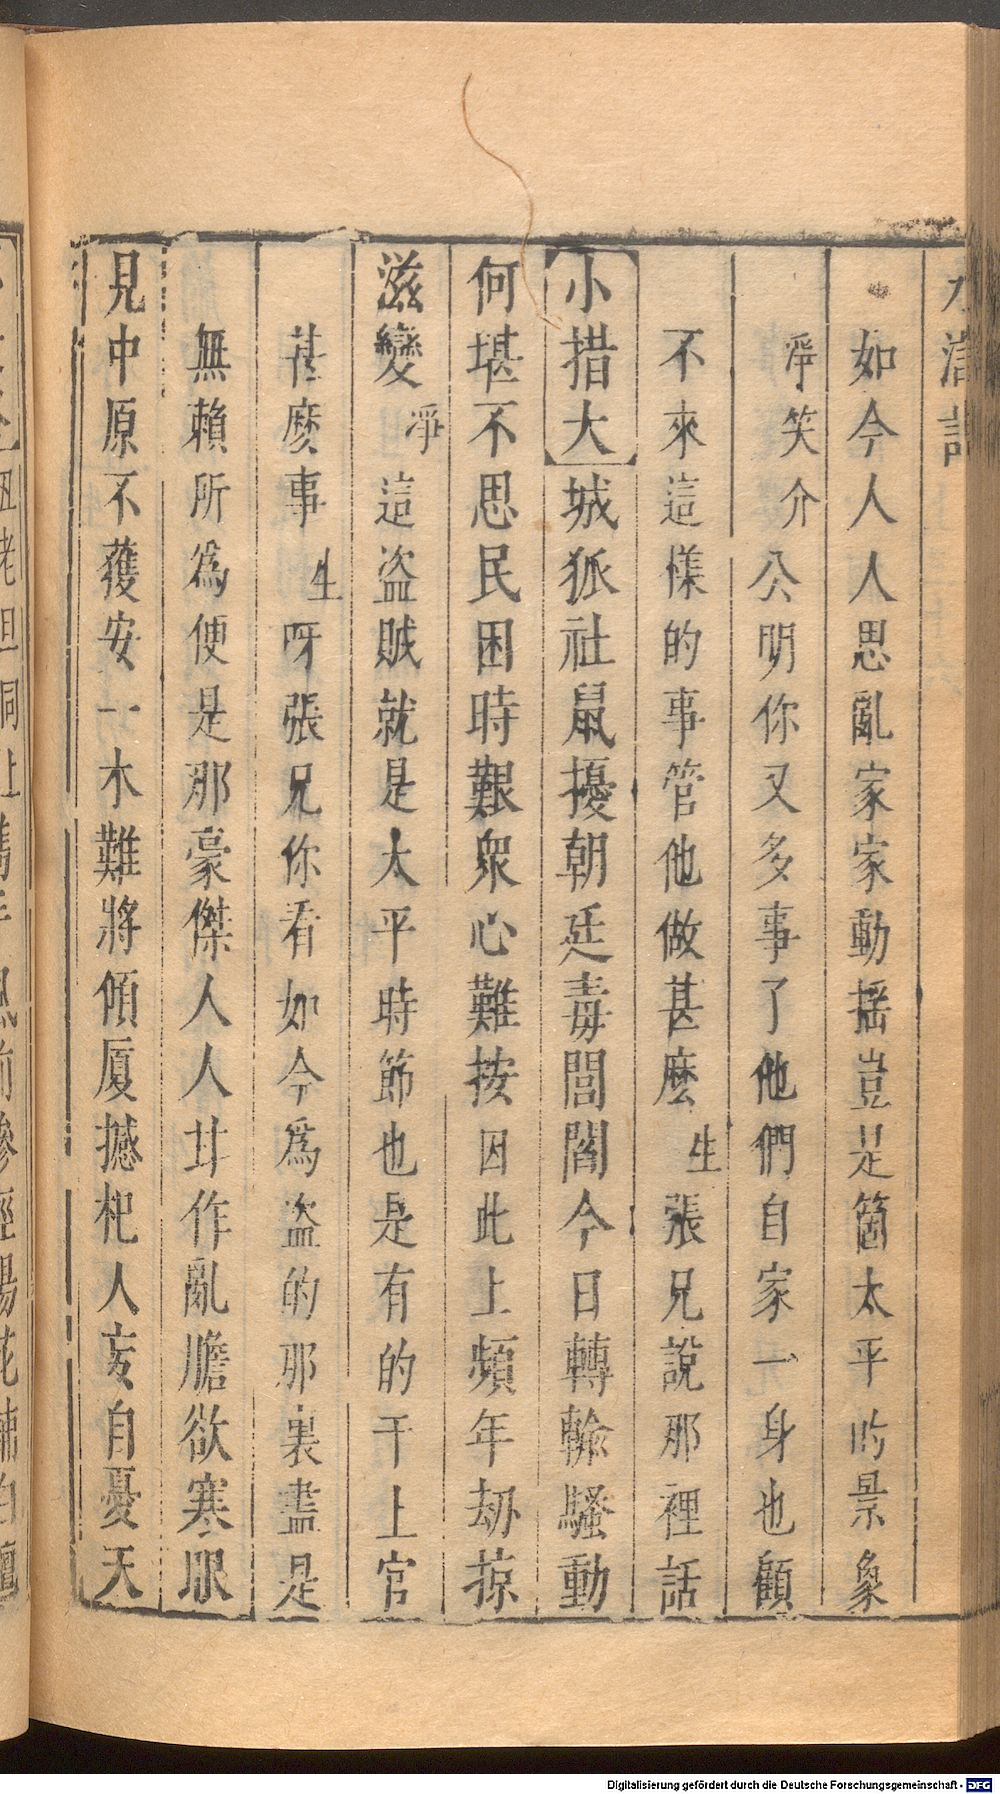 水滸記
如今人人思亂家家動搖豈是箇太平的景象
淨笑介公明你又多事了他們自家一身也顧
不來這樣的事管他做甚麽生張兄說那裡話
小措大城狐社鼠擾朝廷毒閭閻今日轉輸騷動
何堪不思民困時艱衆心難按因此上頻年刼掠
滋變淨這盗賊就是太平時節也是有的干上官
甚麽事生呀張兄你看如今爲盗的那裏盡是
無賴所爲便是那豪傑人人廾作亂膽欲寒眼
見中原不獲安一木難將傾厦撼杞人亥自憂天
Digitalisierung gefördert durch die Deutsche Forschungsgemeinschaft - DFG